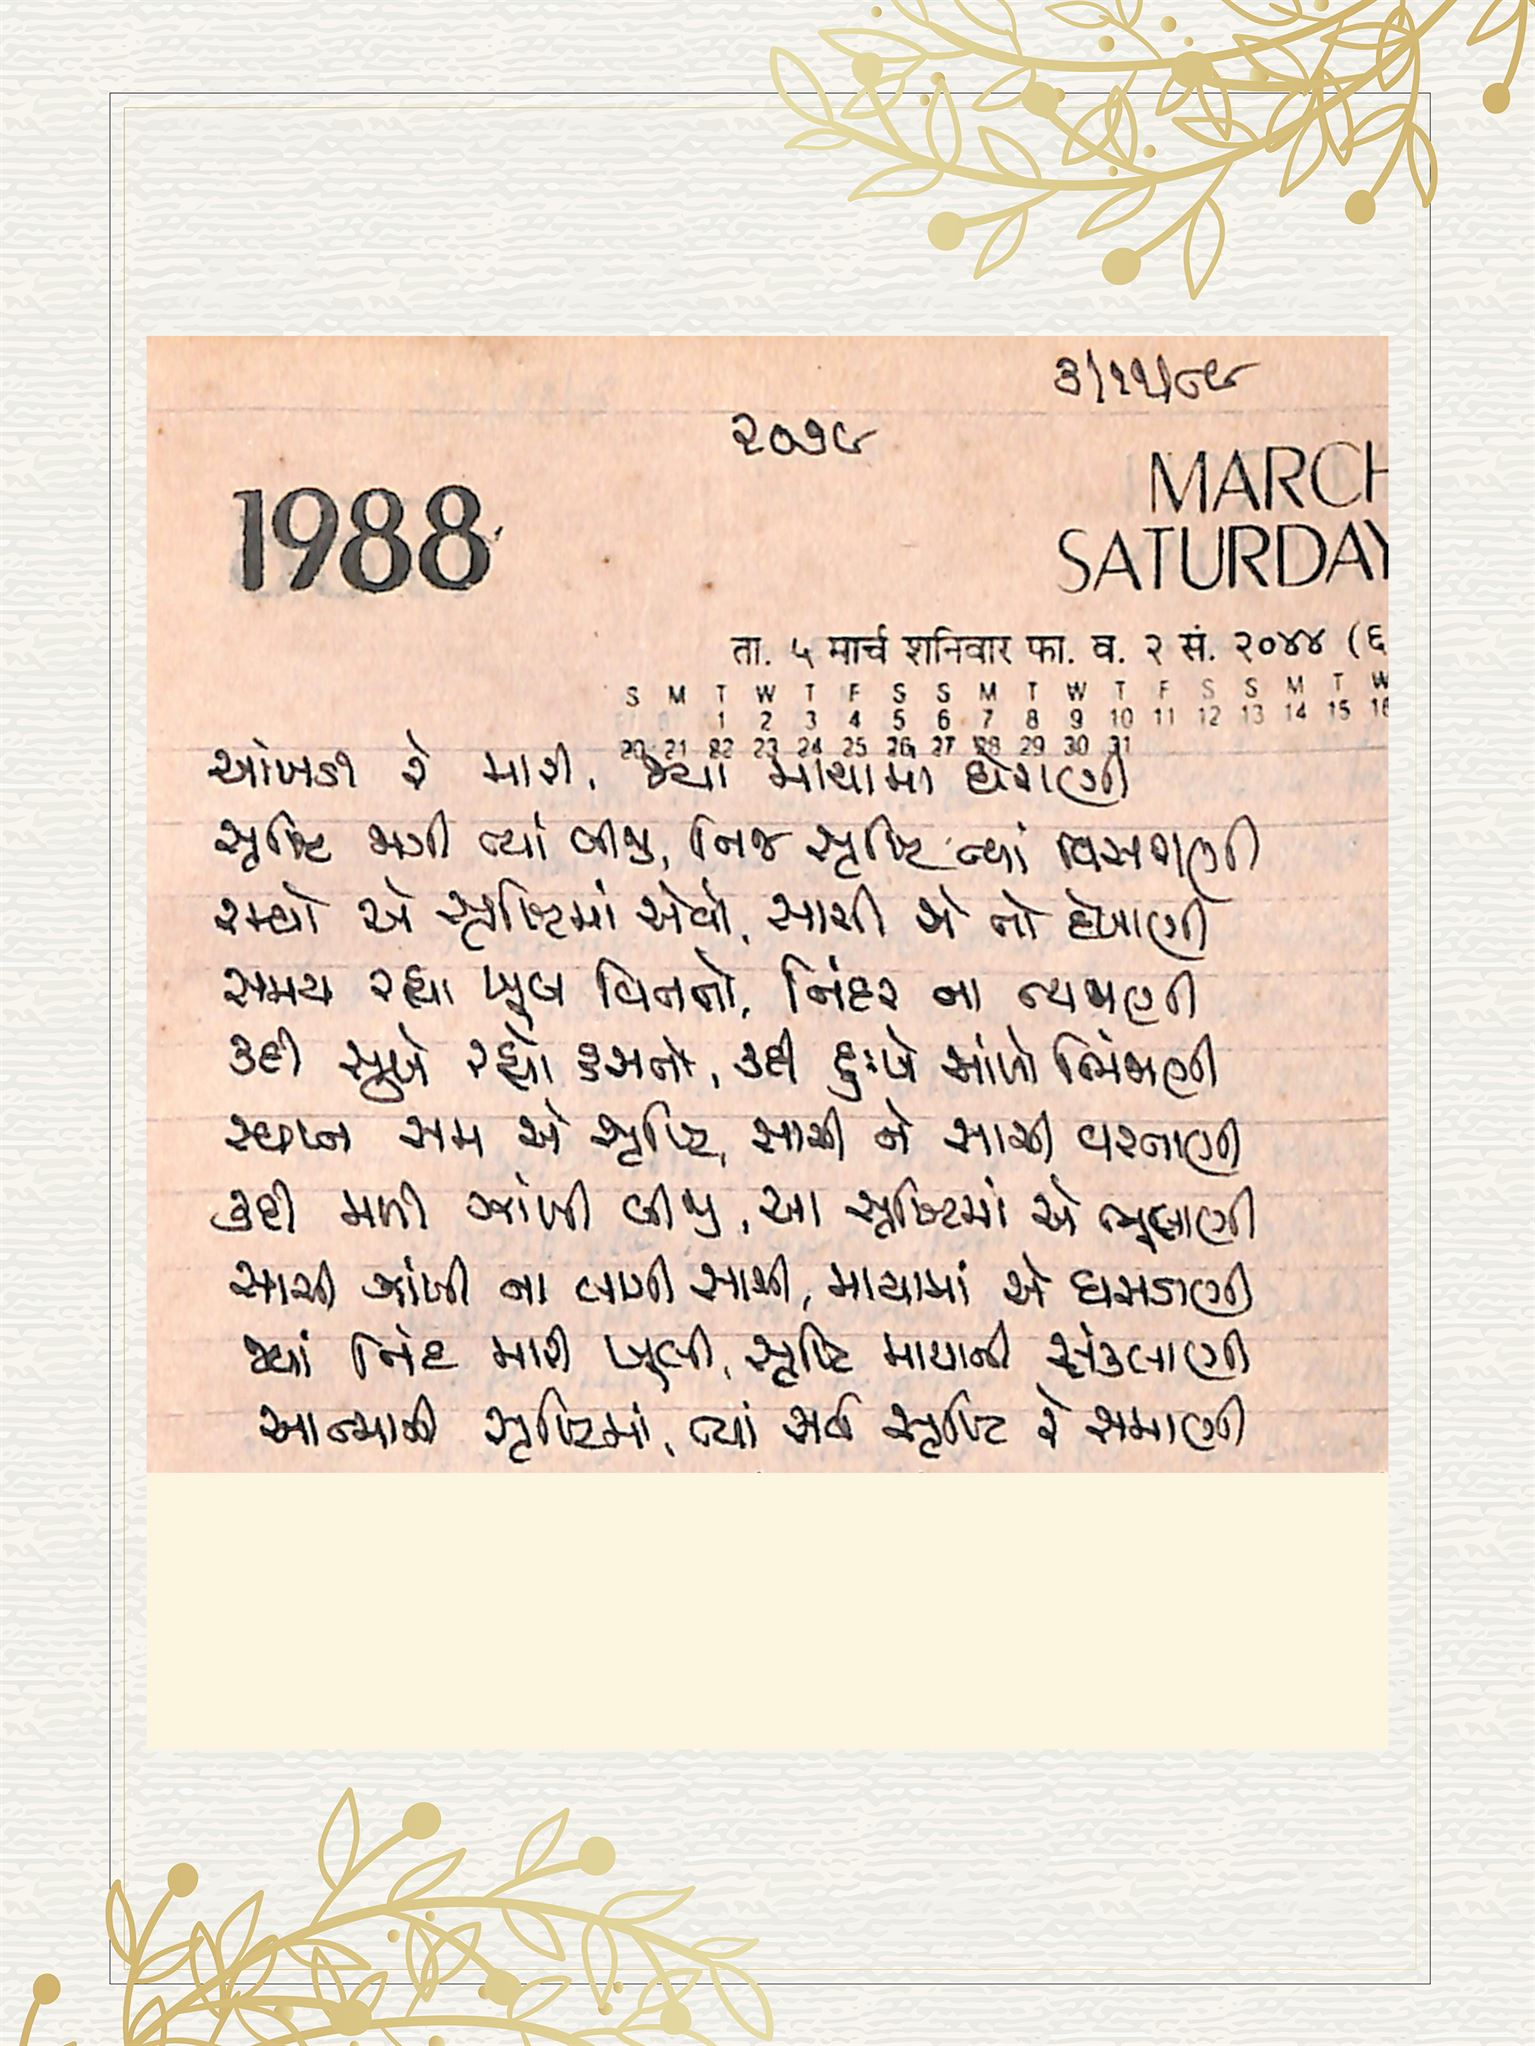 ૩/૧૧/૮૯
૨૦૭૯
1988
MARCH
SATURDAY
ता. ५ मार्च शनिवार फा. व. २ सं. २०४४ (६
S M T W T F S S M T W T F S S M T W
1 2 3 4 5 6 7 8 9 10 11 12 13 14 15 16
20 21 22 23 24 25 26 27 28 29 30 31
આંખડી રે મારી, જ્યાં માયામાં ઘેરાણી
સૃષ્ટિ મળી ત્યાં બીજી, નિજ સૃષ્ટિ ત્યાં વિસરાણી
રમ્યો એ સૃષ્ટિમાં એવો, સાચી એ તો દેખાણી
સમય રહ્યા ખૂબ વિતતો, નિંદર ના ત્યજાણી
કદી સુખે રહ્યો હસતો, કદી દુઃખે આંખો ભિંજાણી
સ્વપ્ન સમ એ સૃષ્ટિ, સાચી ને સાચી વરતાણી
કદી મળી ઝાંખી બીજી, આ સૃષ્ટિમાં એ ભૂલાણી
સાચી ઝાંખી ના લાગી સાચી, માયામાં એ ઘસડાણી
જ્યાં નિંદ મારી ખૂલી, સૃષ્ટિ માયાની સંકેલાણી
આત્માની સૃષ્ટિમાં, ત્યાં સર્વ સૃષ્ટિ રે સમાણી